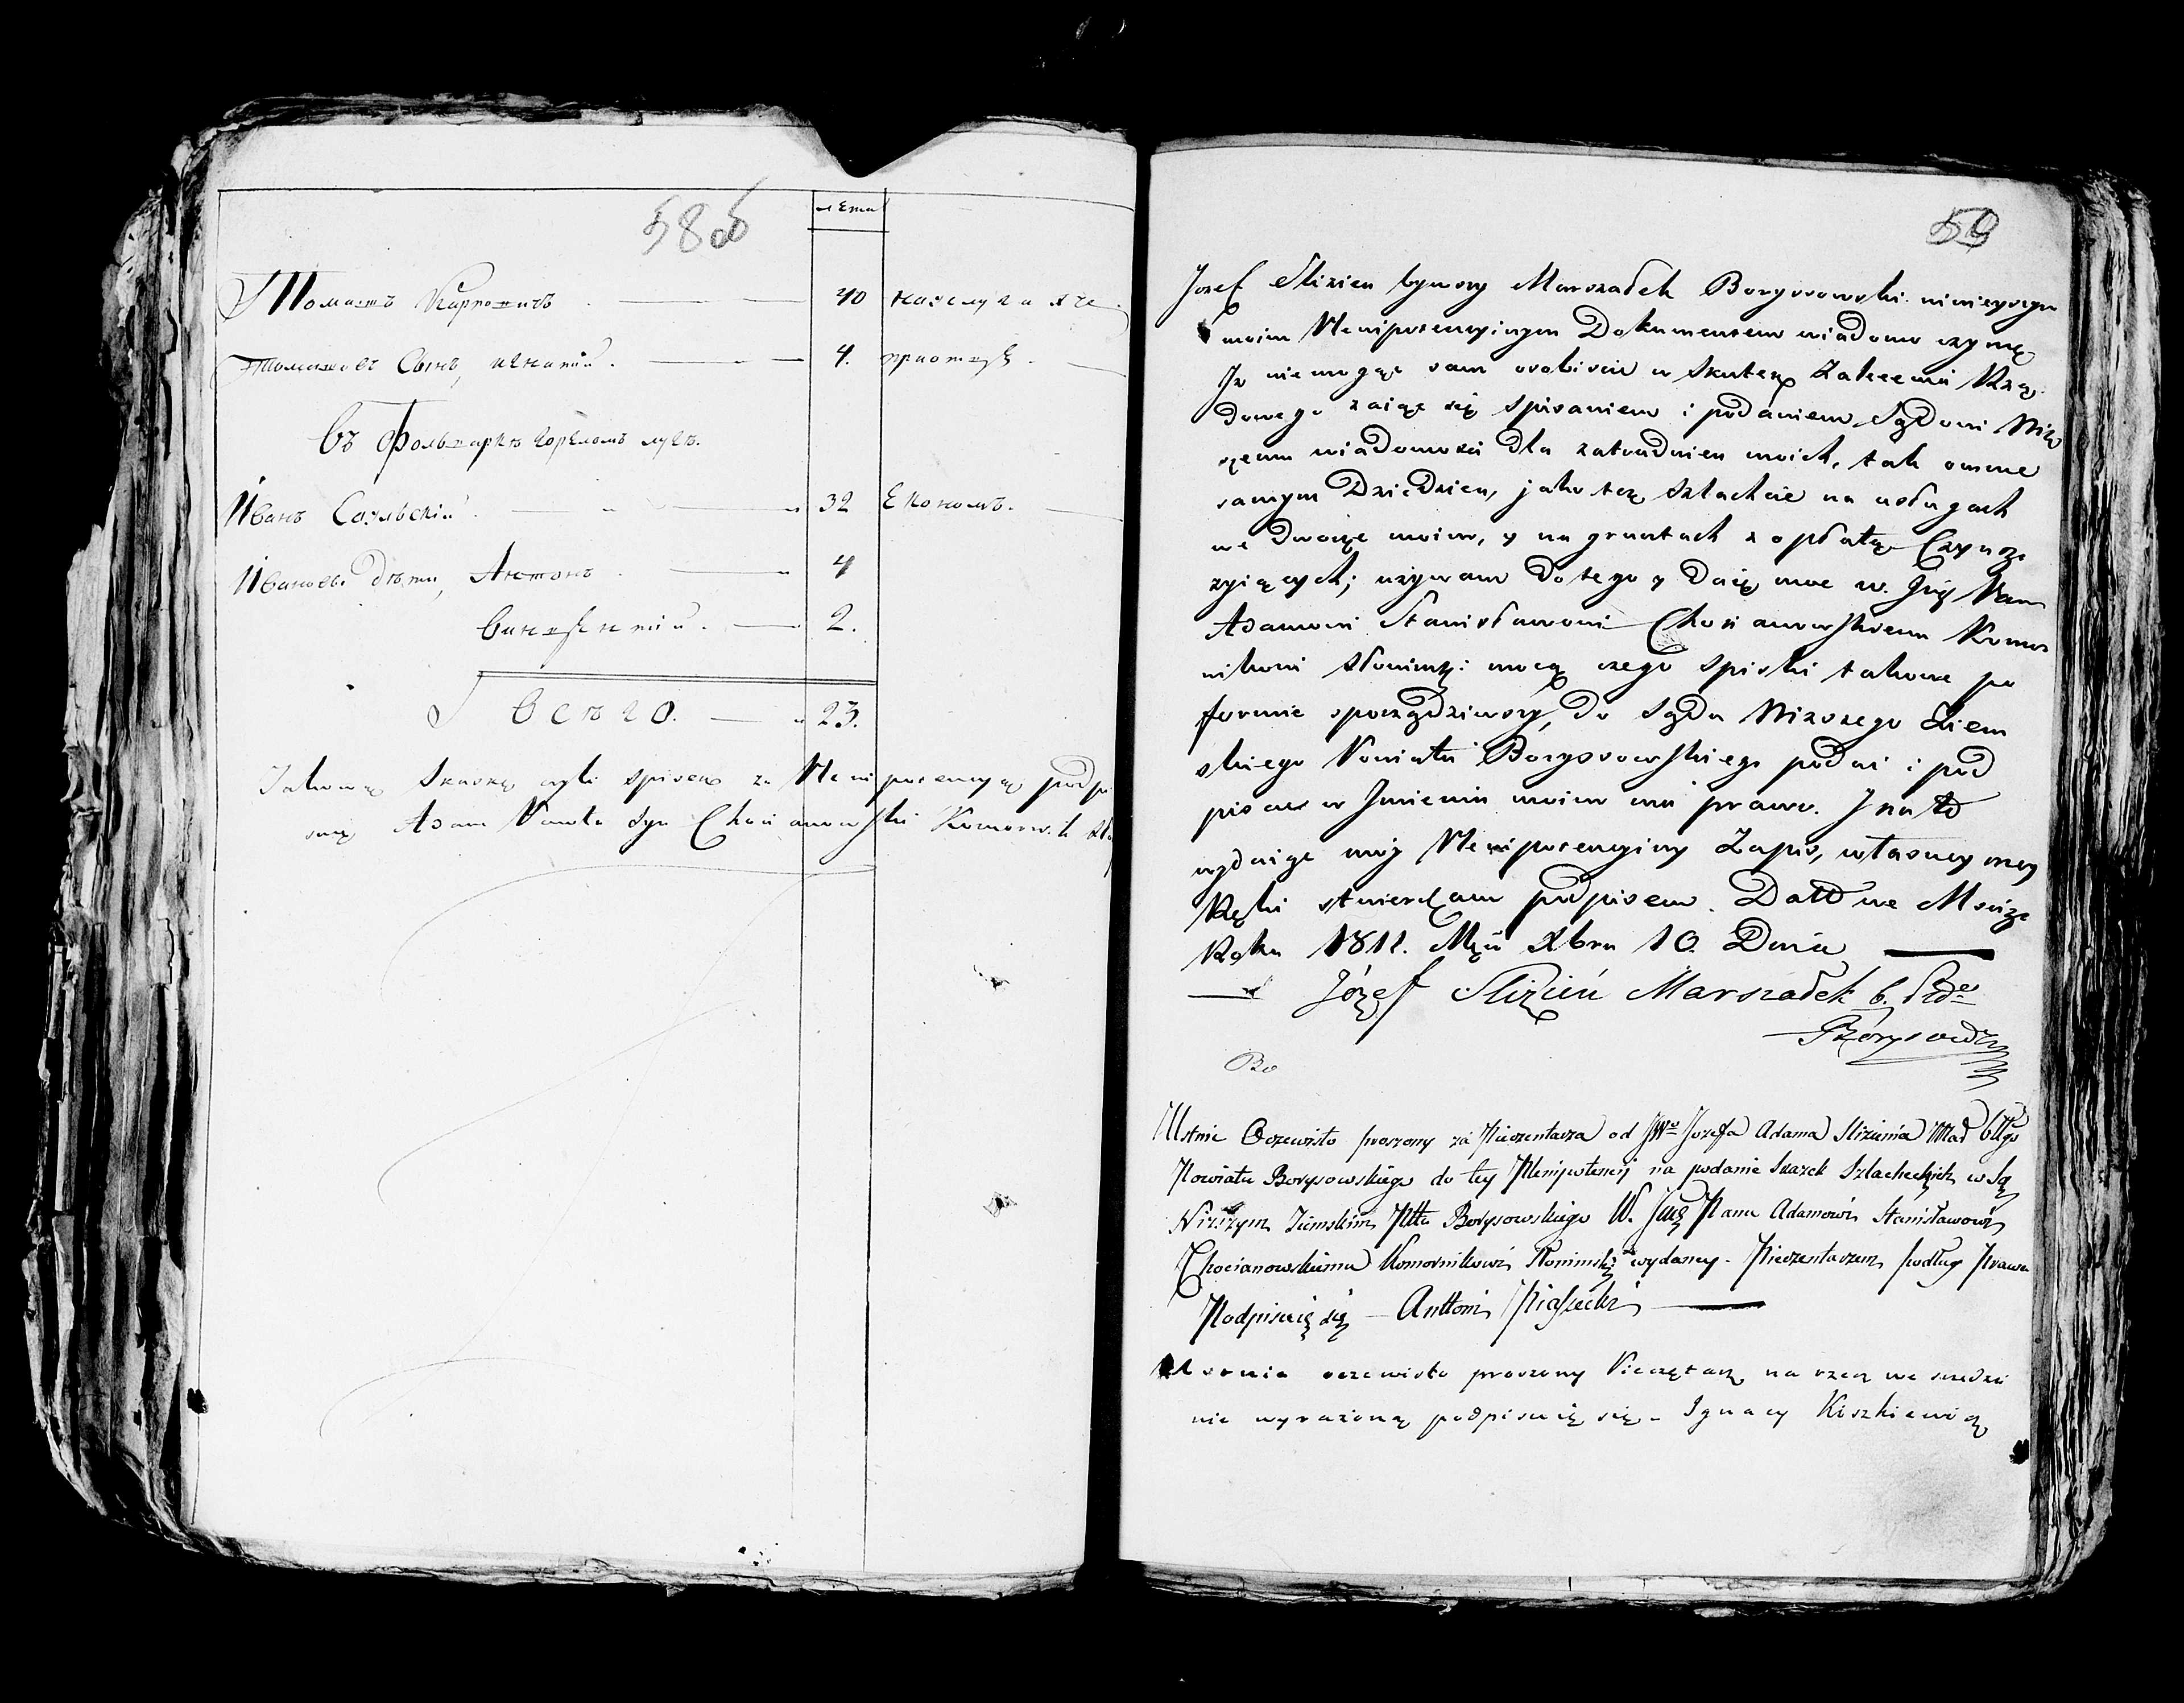 58об
лета
Томашъ Карповичъ 40 на услугахъ
Томашовъ Сынъ, игнатій. 4. приотцѣ.
въ фольваркѣ горѣломъ лугѣ.
Иванъ Согульскій 32 Економъ.
Ивановы дѣти, Антонъ 4
викентій. 2.
всѣго. 23.
Takową skaskę czyli spisek za Plenipotencyą podpi
suię Adam Pawła Syn Chocianowski Komornik
59
Jozef Slizien bywszy Marszałek Borysowski ninieyszym
moim Plenipotencyinym Dokumentem wiadomo czynię
Iż niemogąc sam osobiscie w skutek Zalecenia Rzą
dowego zaiąc się spisaniem i podaniem Sądowi Niż
szemu wiadomosci dla zatrudnien moich, tak omnie
samym Dziedzicu, jako też szlachcie na usługach
we dworze moim, y na gruntach z opłatą Czynszu
zyiących; używam do tego y Daię moc w. Jmć Panu
Adamowi Stanisławowi Chocianowskiemu Komor
nikowi Słonimsk: mocą czego spiski takowe po
formie sporządziwszy, do Sądu Nizszego Ziem
skiego Powiatu Borysowskiego podać i pod
pisac w Jmieniu moim ma prawo. J na to
wydaiąc móy Plenipotencyiny Zapis, własney mey
Ręki stwierdzam podpisem. Datt we Mscize
Roku 1811. Mca Xbra 10. Dnia
Józef Slizień Marszałek b. Ptu
Borysowski
Bo
Ustnie Oczewisto proszony za Pieczentarza od JWo Jozefa Adama Slizienia Mar bttgo
Powiatu Borysowskiego do tey Plenipotencij na podanie Skazek Szlacheckich w Są
Nizszym Ziemskim Pttu Borysowskiego W. Jmć Panu Adamowi Stanisławowi
Chocianowskiemu Komornikowi Słonimsk: wydaney. Pieczentarzem podług Prawa
Podpisuię się Anttoni Piasecki
Ustnie oczewisto proszony Pieczętarz na rzecz we srzedzi
nie wyrażoną podpisuię się - Ignacy Kiszkiewicz